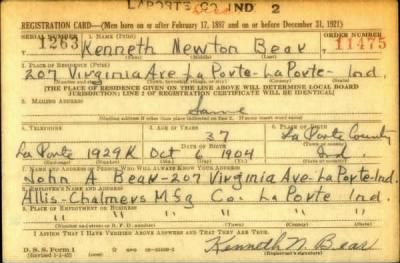 LAPORTE CO IND 2
REGISTRATION CARD—(Men born on or after February 17, 1897 and on or before December 31, 1921)
SERIAL NUMBER 1. NAME (Print) ORDER NUMBER
1263 Kenneth Newton Bear 11475
(First) (Middle) (Last)
2. PLACE OF RESIDENCE (Print)
207 Virginia Ave La Porte - La Porte - Ind.
(Number and street) (Town, township, village, or city) (County) (State)
[THE PLACE OF RESIDENCE GIVEN ON THE LINE ABOVE WILL DETERMINE LOCAL BOARD
JURISDICTION; LINE 2 OF REGISTRATION CERTIFICATE WILL BE IDENTICAL]
3. MAILING ADDRESS
Same
[Mailing address if other than place indicated on line 2. If same insert word same]
4. TELEPHONE 5. AGE IN YEARS 6. PLACE OF BIRTH
37 La Porte County
DATE OF BIRTH
La Porte 1929K Oct 6 1904 Ind.
(Exchange) (Number) (Mo.) (Day) (Yr.) (State or country)
7. NAME AND ADDRESS OF PERSON WHO WILL ALWAYS KNOW YOUR ADDRESS
John A Bear - 207 Virginia Ave - La Porte - Ind.
8. EMPLOYER'S NAME AND ADDRESS
Allis-Chalmers Mfg Co. La Porte Ind
9. PLACE OF EMPLOYMENT OR BUSINESS
" " " " " "
(Number and street or R. F. D. number) (Town) (County) (State)
I AFFIRM THAT I HAVE VERIFIED ABOVE ANSWERS AND THAT THEY ARE TRUE.
D. S. S. Form 1
Kenneth N. Bear
(Registrant's signature)